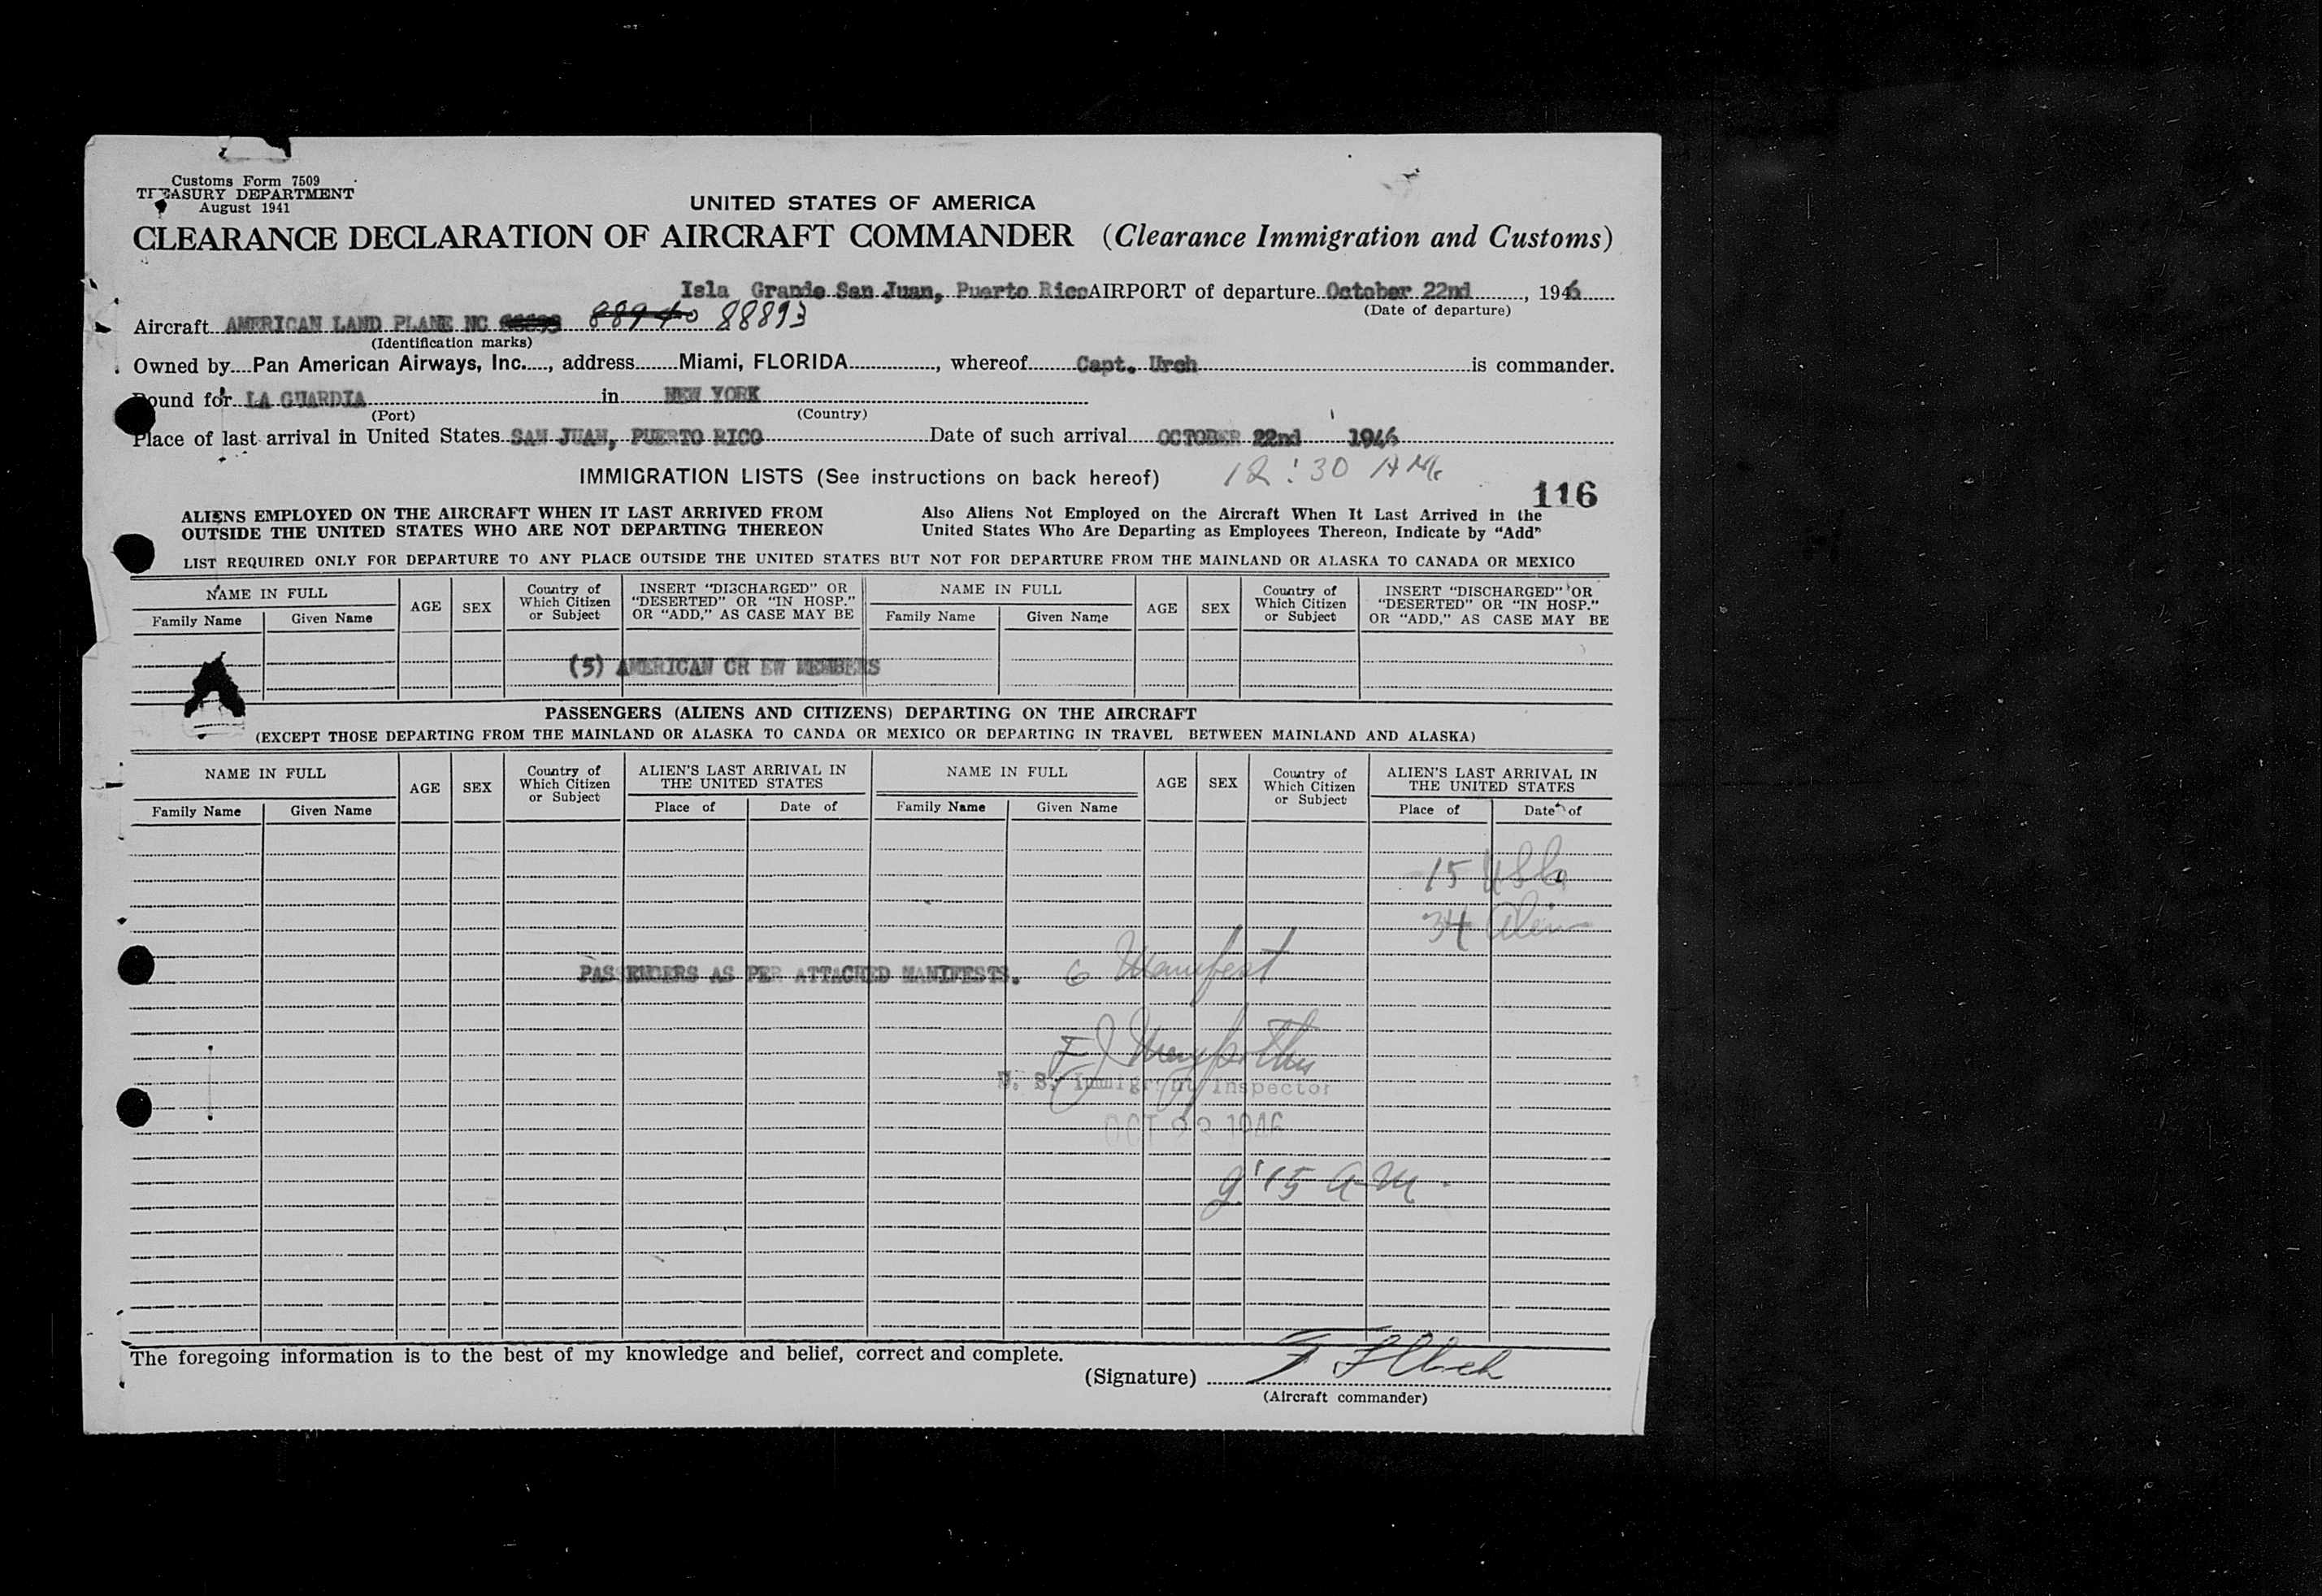 Customs Form 7509
TREASURY DEPARTMENT
August 1941
UNITED STATES OF AMERICA
CLEARANCE DECLARATION OF AIRCRAFT COMMANDER (Clearance Immigration and Customs)
Isla Grande San Juan, Puerto Rico AIRPORT of departure October 22nd, 1946
(Date of departure)
Aircraft AMERICAN LAND PLANE NC 88940 88893
(Identification marks)
Owned by Pan American Airways, Inc., address Miami, FLORIDA, whereof Capt. Urch is commander.
Bound for LA GUARDIA in NEW YORK
(Port) (Country)
Place of last arrival in United States SAN JUAN, PUERTO RICO Date of such arrival OCTOBER 22nd 1946
IMMIGRATION LISTS (See instructions on back hereof) 12:30 AM
116
ALIENS EMPLOYED ON THE AIRCRAFT WHEN IT LAST ARRIVED FROM
OUTSIDE THE UNITED STATES WHO ARE NOT DEPARTING THEREON
Also Aliens Not Employed on the Aircraft When It Last Arrived in the
United States Who Are Departing as Employees Thereon, Indicate by "Add"
LIST REQUIRED ONLY FOR DEPARTURE TO ANY PLACE OUTSIDE THE UNITED STATES BUT NOT FOR DEPARTURE FROM THE MAINLAND OR ALASKA TO CANADA OR MEXICO
NAME IN FULL AGE SEX Country of Which Citizen or Subject INSERT "DISCHARGED" OR "DESERTED" OR "IN HOSP." OR "ADD," AS CASE MAY BE NAME IN FULL AGE SEX Country of Which Citizen or Subject INSERT "DISCHARGED" OR "DESERTED" OR "IN HOSP." OR "ADD," AS CASE MAY BE
Family Name Given Name Family Name Given Name
(5) AMERICAN CR EW MEMBERS
PASSENGERS (ALIENS AND CITIZENS) DEPARTING ON THE AIRCRAFT
(EXCEPT THOSE DEPARTING FROM THE MAINLAND OR ALASKA TO CANDA OR MEXICO OR DEPARTING IN TRAVEL BETWEEN MAINLAND AND ALASKA)
NAME IN FULL AGE SEX Country of Which Citizen or Subject ALIEN'S LAST ARRIVAL IN THE UNITED STATES NAME IN FULL AGE SEX Country of Which Citizen or Subject ALIEN'S LAST ARRIVAL IN THE UNITED STATES
Family Name Given Name Place of Date of Family Name Given Name Place of Date of
15
34 Alien
PASSENGERS AS PER ATTACHED MANIFESTS. 6 Manifest
U. S. Immigrant Inspector
OCT 22 1946
9:15 A M.
The foregoing information is to the best of my knowledge and belief, correct and complete.
(Signature)
(Aircraft commander)